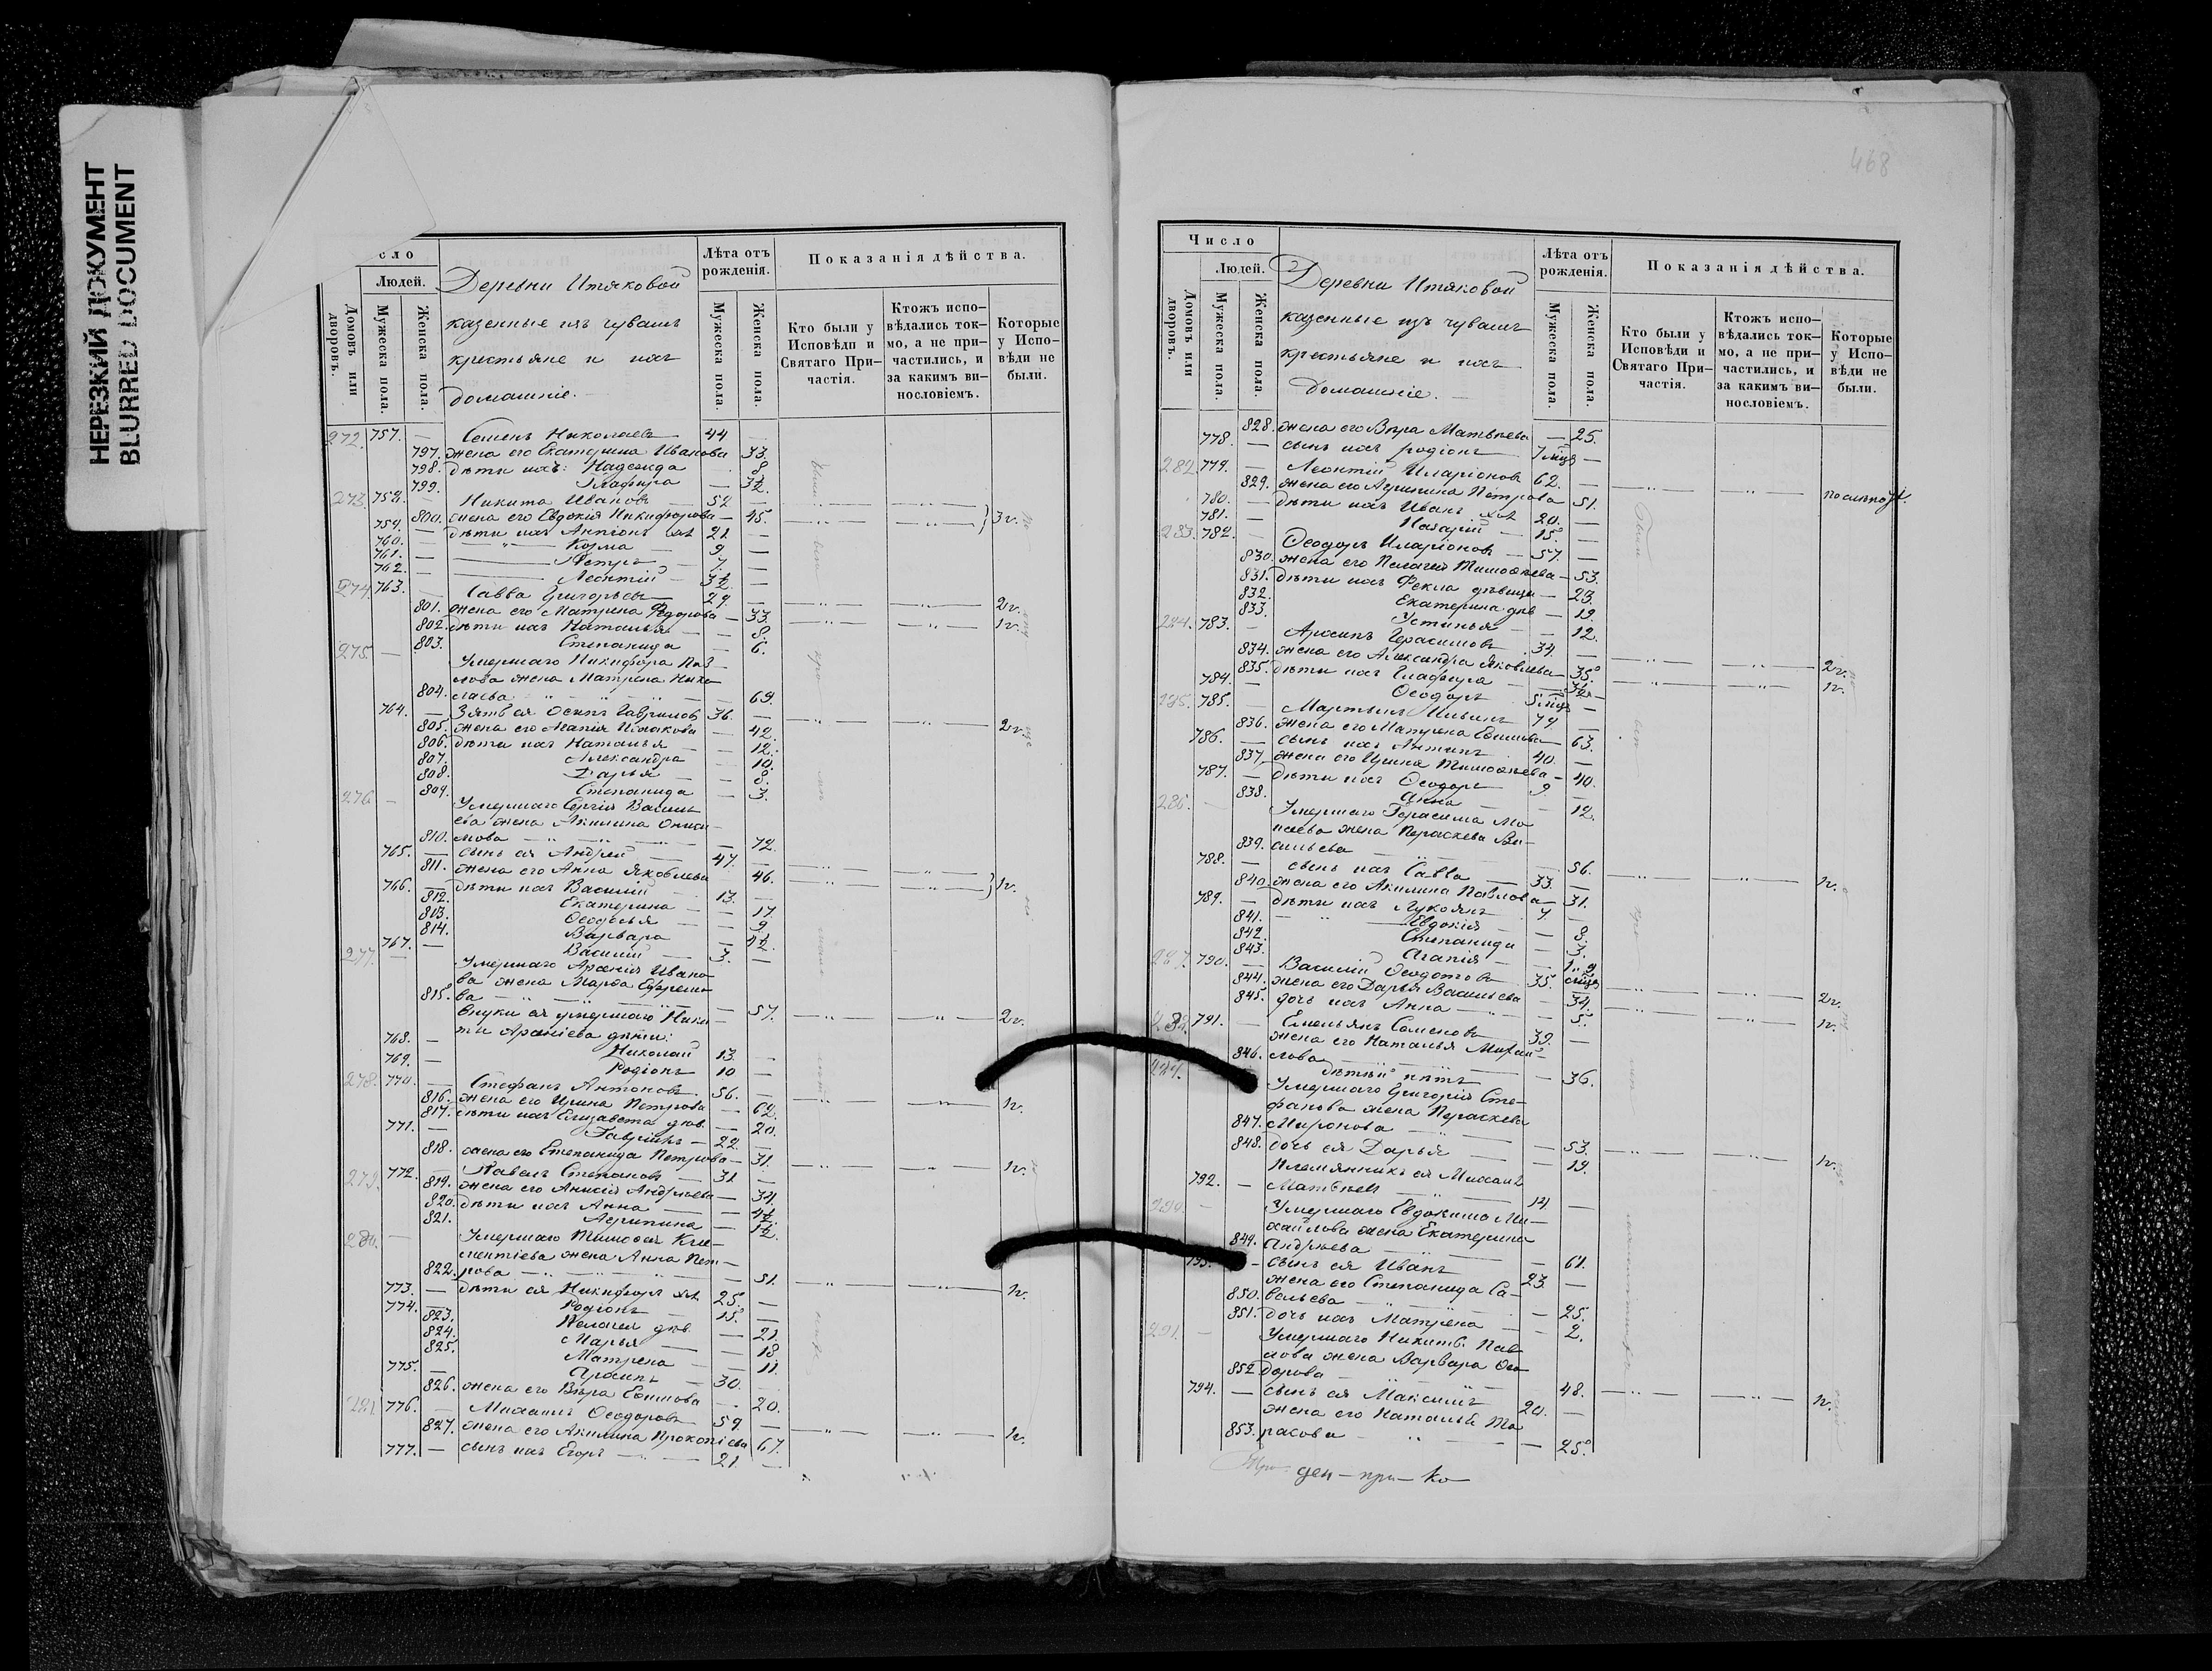 НЕРЕЗКИЙ ДОКУМЕНТ
BLURRED DOCUMENT
сло
Людей.
Домовъ или дворовъ.
Мужеска пола.
Женска пола.
Деревни Итяковой
казенные изъ чувашъ
крестьяне и ихъ
домашніе.
Лѣта отъ рожденія.
Мужеска пола.
Женска пола.
Показанія дѣйства.
Кто были у Исповѣди и Святаго Причастія.
Ктожъ исповѣдались токмо, а не причастились, и за какимъ винословіемъ.
Которые у Исповѣди не были.
272. 757. — Семенъ Николаевъ 44. —
797. жена его Екатерина Иванова 33.
798. дѣти ихъ: Надежда 8.
799. Глафира — 3½.
273. 758. — Никита Ивановъ — 52 —
800. жена его Евдокія Никифорова — 45. 3 г.
759. — дѣти ихъ Антонъ хол 21. —
760. — Козма — 9 —
761. — Петръ — 7. —
762. — Леонтій — 3½ —
274 763. — Савва Григорьевъ — 29. — 2 г.
801. жена его Матрена Ѳедорова — 33. 1 г.
802. дѣти ихъ Наталья — — 8.
803. Степанида — 6.
275. — Умершаго Никифора Пав-
лова жена Матрена Нико-
804. лаева — 69.
764. — Зять ея Осипъ Гавриловъ 36. — 2 г.
805. жена его Марія Исакова — 42.
806. дѣти ихъ Наталья — — 12.
807. Александра — 10.
808. Дарья — — 8.
809. Степанида — 3.
276 — Умершаго Сергія Василь-
ева жена Акилина Ониси-
810. мова — 72.
765. — сынъ ея Андрей — 47. —
811. жена его Анна Яковлева 46. 1 г.
766. — дѣти ихъ Василій 13. —
812. Екатерина — — 17.
813. Ѳеодосья — — 9
814. Варвара — 4½.
767. — Василій — 3. —
277. — Умершаго Арсенія Ивано-
ва жена Марѳа Ефремо-
815. ва — 57. 2 г.
внуки ея умершаго Ники-
ты Арсеніева дѣти:
768. — Николай 13. —
769. — Родіонъ 10 —
278. 770. — Стефанъ Антоновъ 56. —
816. жена его Ирина Петрова — 62. 1 г.
817. дѣти ихъ Елизавета дѣв. — 20.
771. — Гавріилъ — 22.
818. жена его Степанида Петрова — 31. 1 г.
279. 772. — Павелъ Степановъ — 31 —
819. жена его Анисія Андреева — 34.
820. дѣти ихъ Анна — — 4½.
821. Агрипина — 1½.
280. — Умершаго Тимоѳея Кле-
ментіева жена Анна Пет-
822. рова — 51.
773. — дѣти ея Никифоръ хол 25. — 1 г.
774. — Родіонъ — 15. —
823. Пелагея дѣв. — 21.
824. Марья — — 18
825. Матрена — — 11.
775. — Архипъ — 30. —
826. жена его Вѣра Евтихова — 20.
281 776. — Михаилъ Ѳеодоровъ 59. —
827. жена его Акилина Прокопіева 67. 1 г.
777. — сынъ ихъ Егоръ — 21. —
468
Число
Людей.
Домовъ или дворовъ.
Мужеска пола.
Женска пола.
Деревни Итяковой
казенные изъ чувашъ
крестьяне и ихъ
домашніе.
Лѣта отъ рожденія.
Мужеска пола.
Женска пола.
Показанія дѣйства.
Кто были у Исповѣди и Святаго Причастія.
Ктожъ исповѣдались токмо, а не причастились, и за какимъ винословіемъ.
Которые у Исповѣди не были.
828. жена его Вѣра Матвѣева — 25.
778. — сынъ ихъ Родіонъ 7 мцъ —
282. 779. — Леонтій Иларіоновъ 62. —
829. жена его Агрипина Петрова 51.
780. — дѣти ихъ Иванъ хол 20. —
781. — Назарій — 15. —
283. 782. — Ѳеодоръ Иларіоновъ — 57. —
830. жена его Пелагея Тимоѳеева — 53.
831. дѣти ихъ Ѳекла дѣвица — 23.
832. Екатерина дѣв — 19.
833. Устинья — — 12.
284. 783. — Архипъ Герасимовъ 34. —
834. жена его Александра Яковлева — 35. 2 г.
835. дѣти ихъ Глафира — 3½ 1 г.
784. — Ѳеодоръ 5 мцъ —
285. 785. — Мартынъ Ильинъ 74. —
836. жена его Матрена Ефимова — 63.
786. — сынъ ихъ Антипъ 40. —
837. жена его Ирина Тимоѳеева — 40.
787. — дѣти ихъ Ѳеодоръ 9 —
838. Анна — — 12.
286. — Умершаго Герасима Мо-
837. жена Параскева Ва-
839. сильева — 56.
788. — сынъ ихъ Савва — 33. — 1 г.
840. жена его Акилина Павлова — 31.
789. — дѣти ихъ Лукоянъ 7. —
841. Евдокія — — 8.
842. Степанида — 3.
843. Агапія —
287. 790. — Василій Ѳедотовъ 35. —
844. жена его Дарья Васильева — 34. 2 г.
845. дочь ихъ Анна — 5. 1 г.
288. 791. — Емельянъ Семеновъ 39. —
жена его Наталья Михай-
846. лова — 36.
дѣтей нѣтъ
289. Умершаго Григорія Сте-
фанова жена Параскева
847. Миронова — 53.
848. дочь ея Дарья — — 19. 1 г.
Племянникъ ея Михаилъ
792. — Матвѣевъ 14. —
290. — Умершаго Евдокима Ми-
хайлова жена Екатерина
849. Андреева — 61.
793. — сынъ ея Иванъ 23. —
жена его Степанида Са-
850. вельева — 25.
851. дочь ихъ Матрена — — 2.
291. — Умершаго Никиты Пав-
лова жена Варвара Ѳео-
852 дорова — 48.
794. — сынъ ея Максимъ 20. — 1 г.
жена его Наталья Та-
853. расова — 25.
ден — при — ко